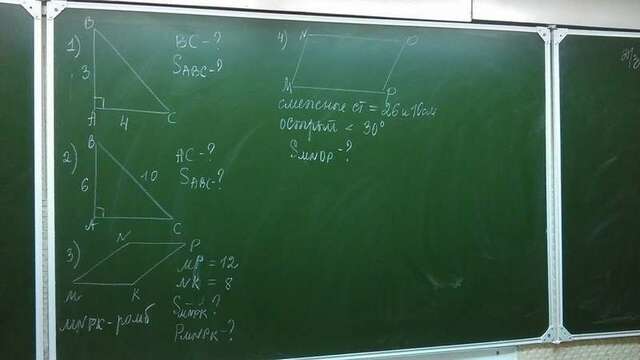 1)
B
3
A
4
C
BC - ?
S ABC - ?
2)
B
6
10
A
C
AC - ?
S ABC - ?
3)
N
P
M
K
MNPK - ромб
MP = 12
NK = 8
S MNPK - ?
P MNPK - ?
4)
N
O
M
P
смежные ст = 26 и 16 см
острый < 30°
S MNOP - ?